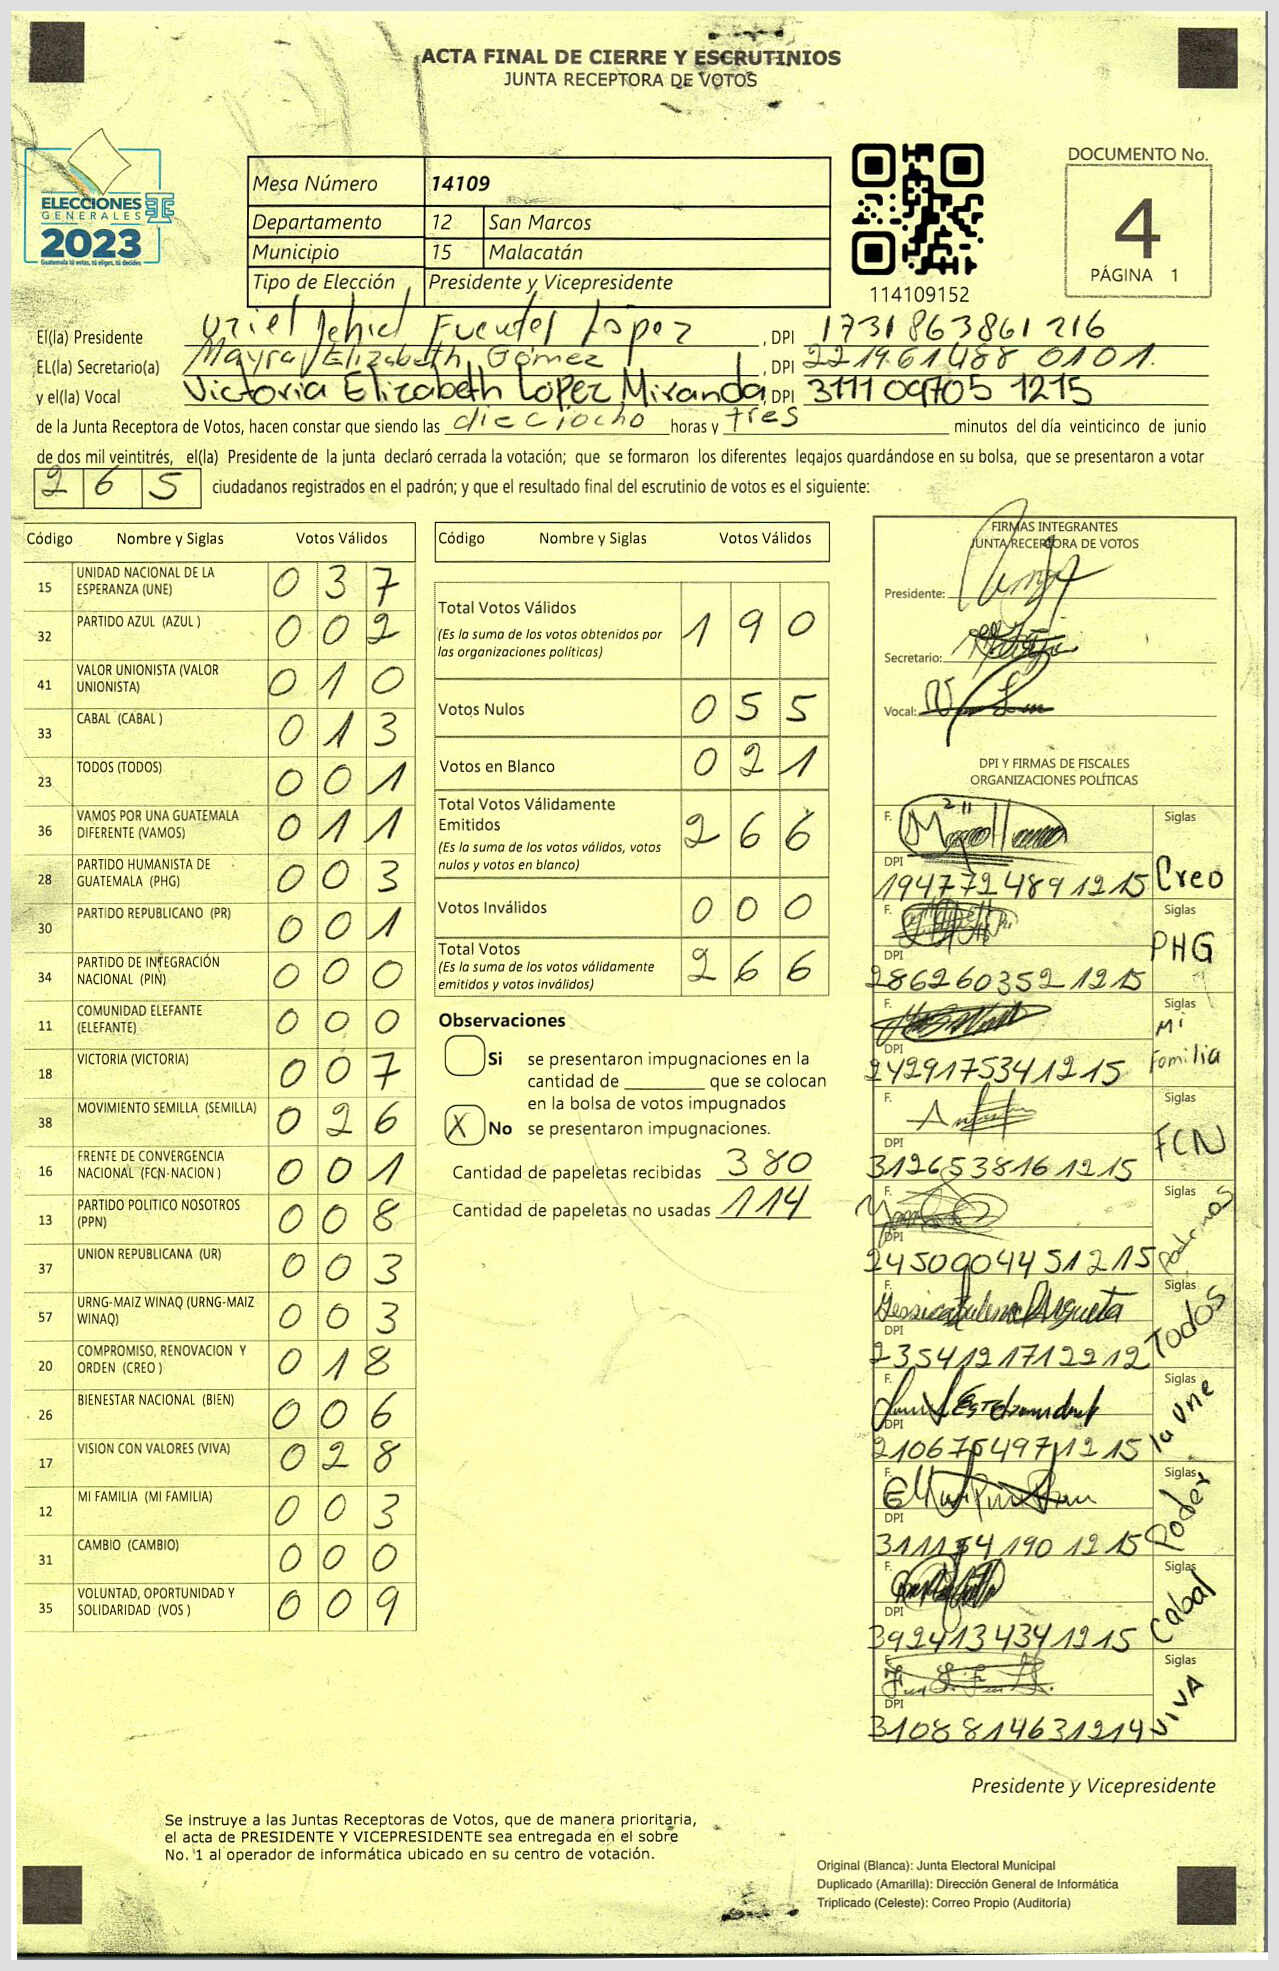 ACTA FINAL DE CIERRE Y ESCRUTINIOS
JUNTA RECEPTORA DE VOTOS
ELECCIONES
GENERALES
2023
Guatemala tú votas, tú eliges, tú decides
Mesa Número 14109
Departamento 12 San Marcos
Municipio 15 Malacatán
Tipo de Elección Presidente y Vicepresidente
114109152
DOCUMENTO No.
4
PÁGINA 1
El(la) Presidente Uriel Jehiel Fuentes Lopez , DPI 1731863861216
EL(la) Secretario(a) Mayra Elizabeth Gómez , DPI 2219614880101.
y el(la) Vocal Victoria Elizabeth López Miranda, DPI 3111097051215
de la Junta Receptora de Votos, hacen constar que siendo las dieciocho horas y tres minutos del día veinticinco de junio
de dos mil veintitrés, el(la) Presidente de la junta declaró cerrada la votación; que se formaron los diferentes legajos quardándose en su bolsa, que se presentaron a votar
265 ciudadanos registrados en el padrón; y que el resultado final del escrutinio de votos es el siguiente:
Código Nombre y Siglas Votos Válidos
15 UNIDAD NACIONAL DE LA ESPERANZA (UNE) 037
32 PARTIDO AZUL (AZUL ) 002
41 VALOR UNIONISTA (VALOR UNIONISTA) 010
33 CABAL (CABAL ) 013
23 TODOS (TODOS) 001
36 VAMOS POR UNA GUATEMALA DIFERENTE (VAMOS) 011
28 PARTIDO HUMANISTA DE GUATEMALA (PHG) 003
30 PARTIDO REPUBLICANO (PR) 001
34 PARTIDO DE INTEGRACIÓN NACIONAL (PIN) 000
11 COMUNIDAD ELEFANTE (ELEFANTE) 000
18 VICTORIA (VICTORIA) 007
38 MOVIMIENTO SEMILLA (SEMILLA) 026
16 FRENTE DE CONVERGENCIA NACIONAL (FCN-NACION ) 001
13 PARTIDO POLITICO NOSOTROS (PPN) 008
37 UNION REPUBLICANA (UR) 003
57 URNG-MAIZ WINAQ (URNG-MAIZ WINAQ) 003
20 COMPROMISO, RENOVACION Y ORDEN (CREO ) 018
26 BIENESTAR NACIONAL (BIEN) 006
17 VISION CON VALORES (VIVA) 028
12 MI FAMILIA (MI FAMILIA) 003
31 CAMBIO (CAMBIO) 000
35 VOLUNTAD, OPORTUNIDAD Y SOLIDARIDAD (VOS ) 009
Código Nombre y Siglas Votos Válidos
Total Votos Válidos 190
(Es la suma de los votos obtenidos por
las organizaciones políticas)
Votos Nulos 055
Votos en Blanco 021
Total Votos Válidamente
Emitidos 266
(Es la suma de los votos válidos, votos
nulos y votos en blanco)
Votos Inválidos 000
Total Votos 266
(Es la suma de los votos válidamente
emitidos y votos inválidos)
Observaciones
Si se presentaron impugnaciones en la
cantidad de ________ que se colocan
en la bolsa de votos impugnados
X No se presentaron impugnaciones.
Cantidad de papeletas recibidas 380
Cantidad de papeletas no usadas 114
FIRMAS INTEGRANTES
JUNTA RECEPTORA DE VOTOS
Presidente:
Secretario:
Vocal:
DPI Y FIRMAS DE FISCALES
ORGANIZACIONES POLÍTICAS
F. Siglas
DPI
1947724891215 Creo
F. Siglas
DPI PHG
2862603521215
F. Siglas
DPI Mi Familia
2429175341215
F. Siglas
DPI FCN
3126538161215
F. Siglas
DPI
2450904451215 podemos
F. Siglas
DPI
2354121712212 Todos
F. Siglas
DPI
2106754971215 la une
F. Siglas
DPI
3111541901215 Poder
F. Siglas
DPI
3924134341215 Cabal
F. Siglas
DPI
3108814631214 VIVA
Presidente y Vicepresidente
Se instruye a las Juntas Receptoras de Votos, que de manera prioritaria,
el acta de PRESIDENTE Y VICEPRESIDENTE sea entregada en el sobre
No. 1 al operador de informática ubicado en su centro de votación.
Original (Blanca): Junta Electoral Municipal
Duplicado (Amarilla): Dirección General de Informática
Triplicado (Celeste): Correo Propio (Auditoría)